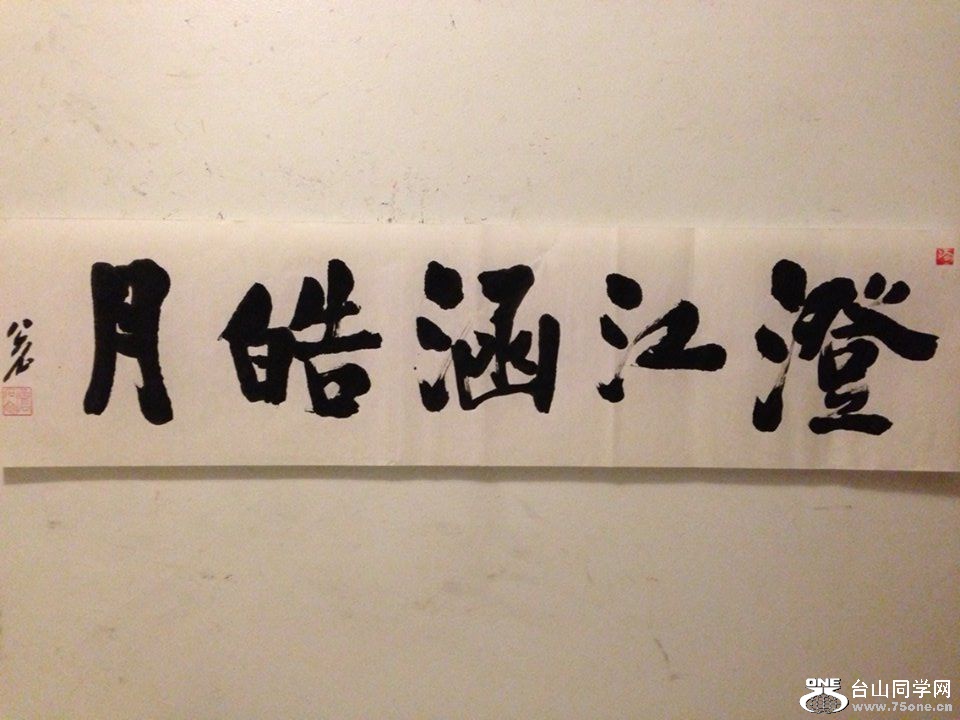 澄江涵皓月
ONE 台山同学网
www.75one.cn